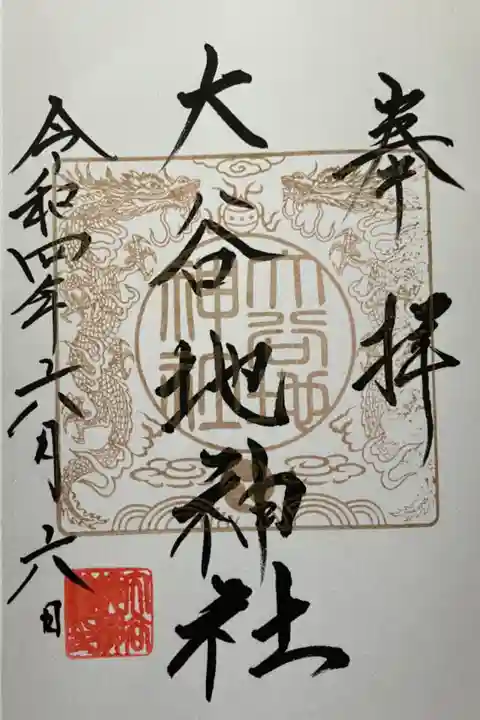 奉拝
大谷地神社
大谷地
神社
令和四年六月六日